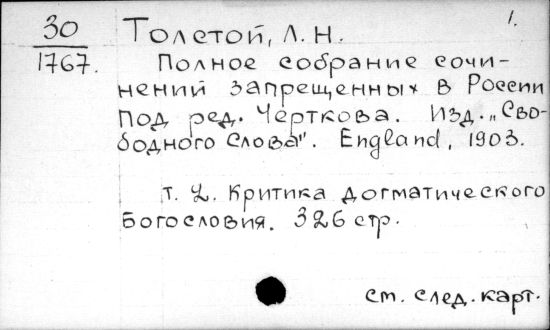 30
1767.
1.
Толстой, Л. Н.
Полное собрание сочи-
нений запрещенных в России
под ред. Черткова. Изд. „Сво-
бодного Слова". England, 1903.
т. 2. Критика догматического
богословия. 326 стр.
см. след. карт.